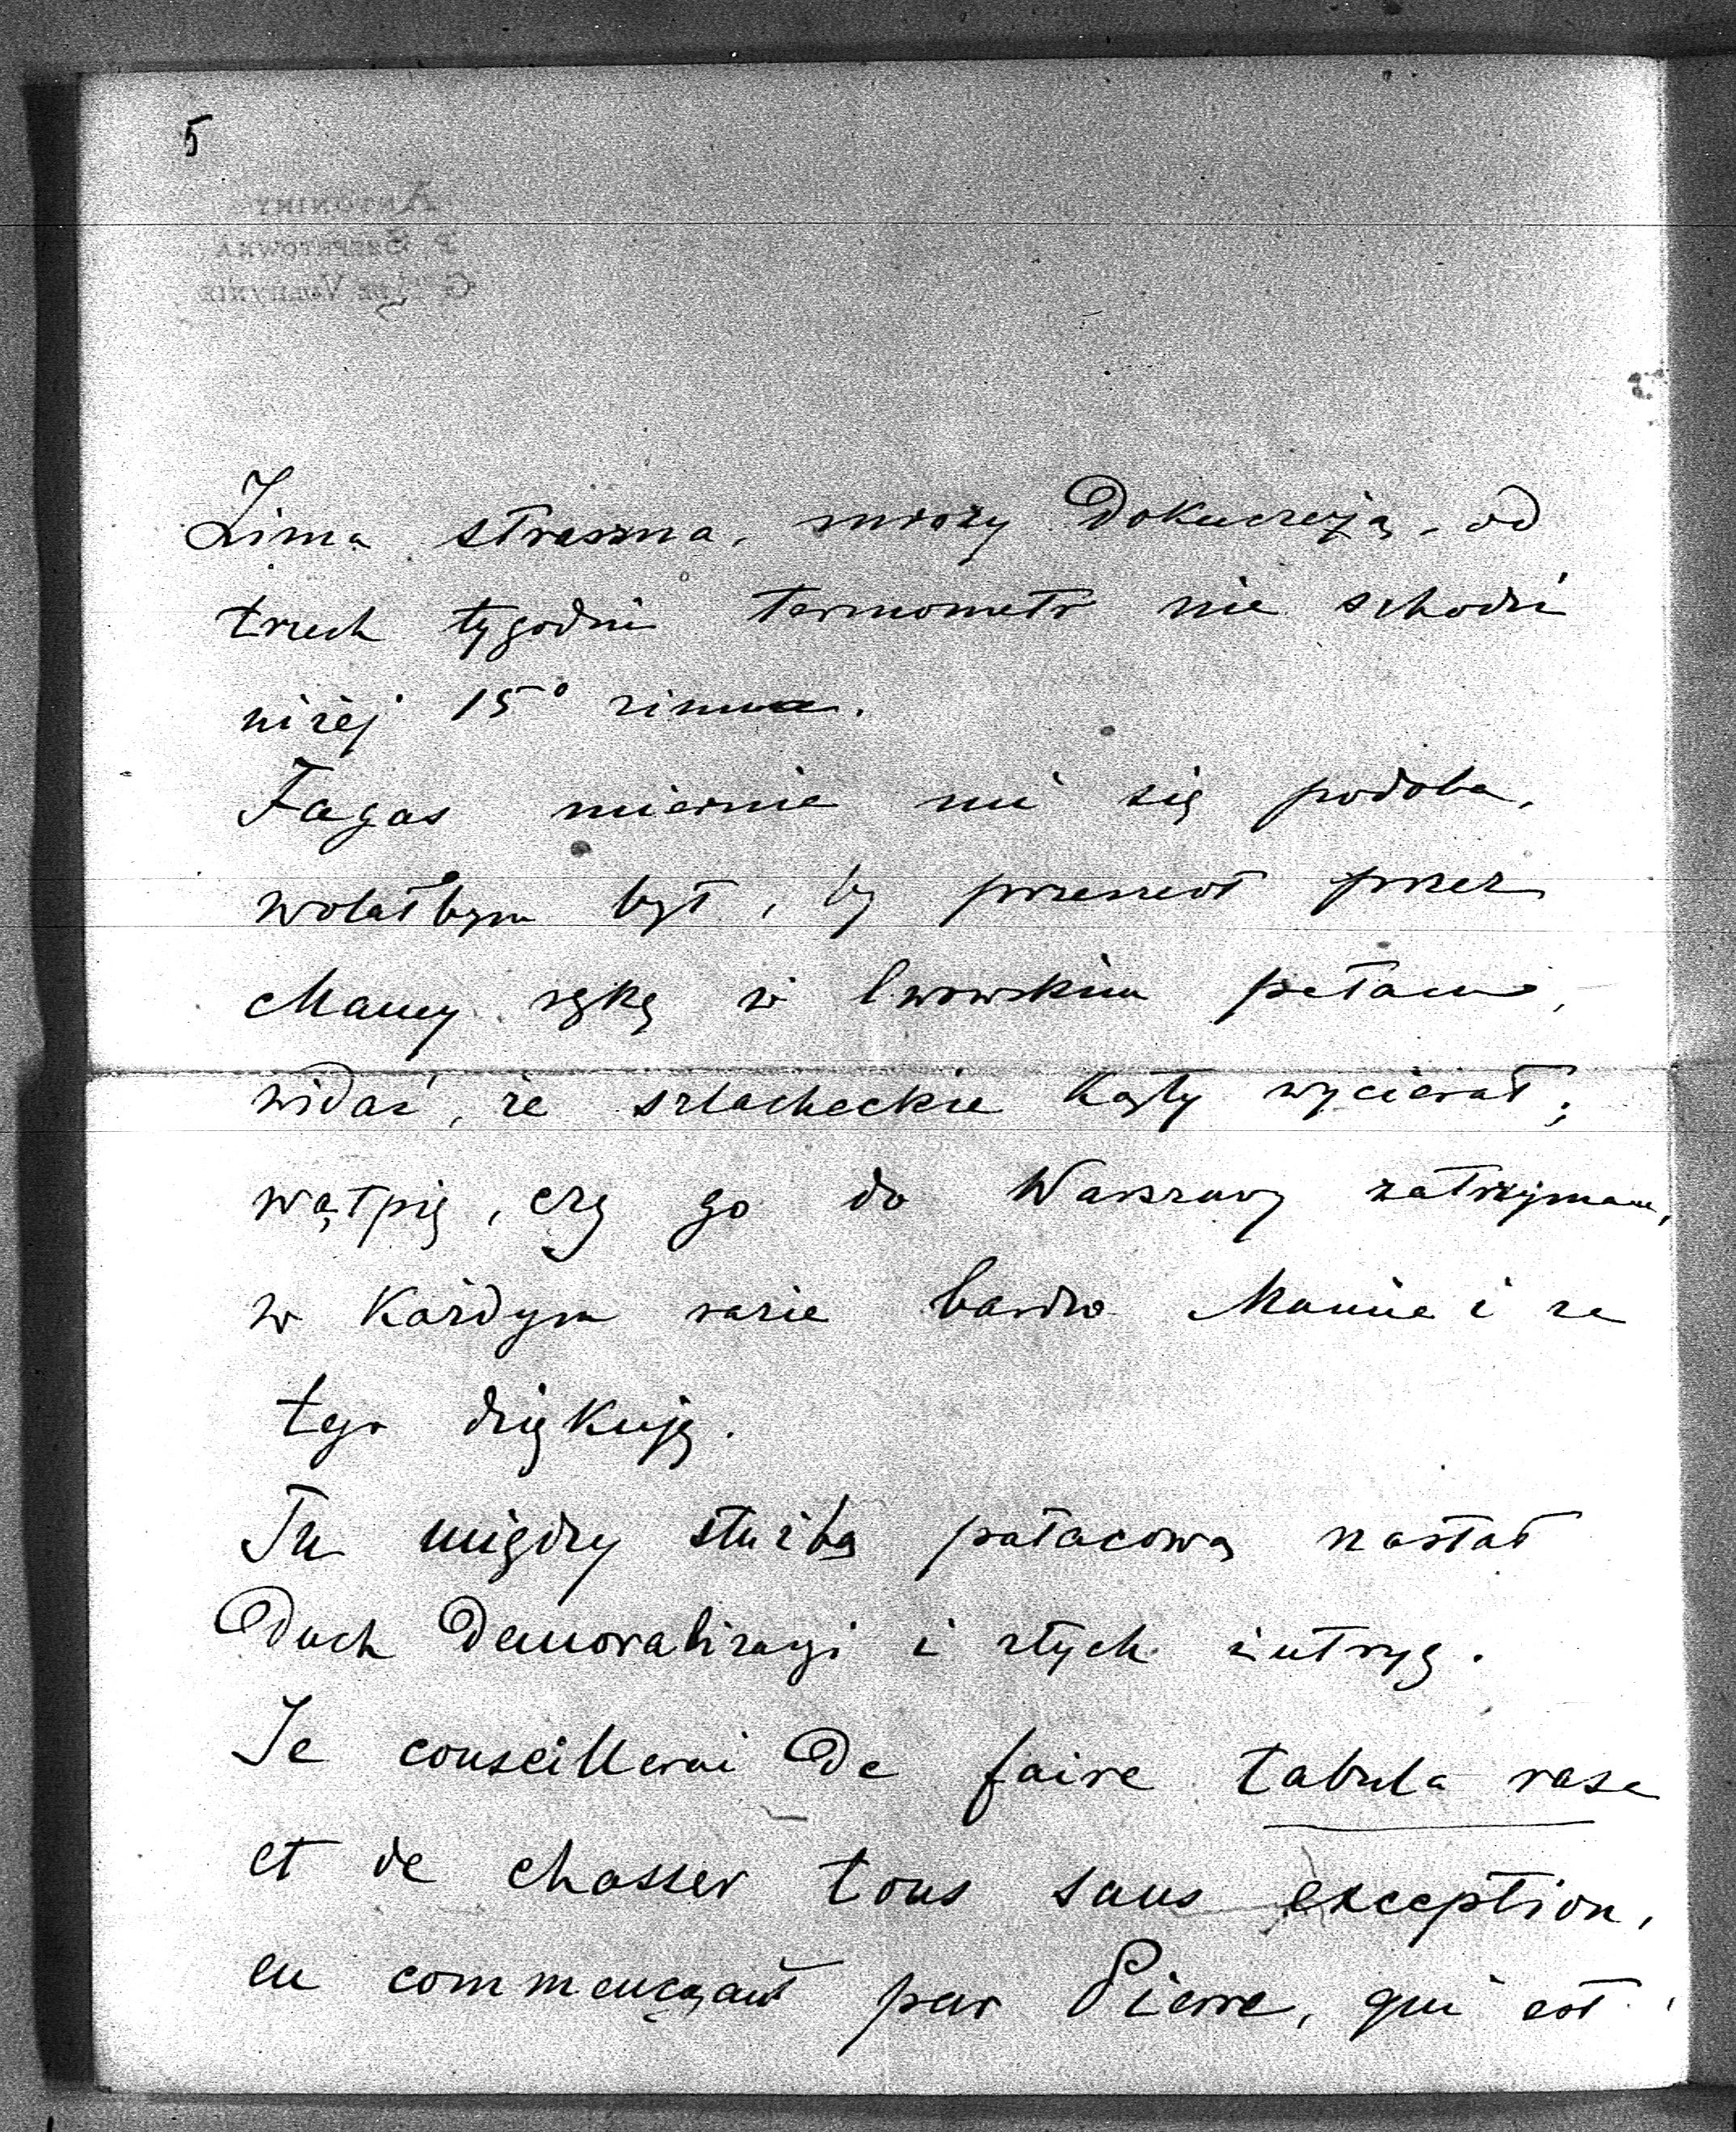 5
ANTONINY
P. SHEPETOWKA
Gt DE VOLHYNIE
Zima straszna, mrozy dokuczają, od
trzech tygodni termometr nie schodzi
niżej 15° zimna.
Fagas miernie mi się podoba,
wolałbym był, by przeszedł przez
Mamy rękę w lwowskim pałacu,
widać, że szlacheckie kąty wycierał;
wątpię, czy go do Warszawy zatrzymam,
w każdym razie bardzo Mamie i za
tego dziękuję.
Tu między służbą pałacową nastał
duch demoralizacyi i złych intryg.
Je conseillerai de faire tabula rasa
et de chasser tous sans exception,
en commençant par Pierre, qui est